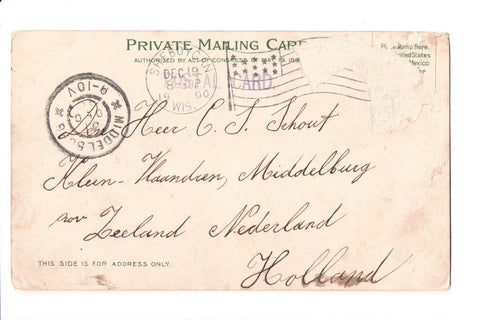 PRIVATE MAILING CARD
AUTHORIZED BY ACT OF CONGRESS OF MAY 19, 189
Place Stamp Here
United States
Mexico
SHEBOYGAN
DEC 19
8-30P
1900
WIS.
MIDDELBU
8-10V
Heer C. J. Schout
Klein-Vlaandren, Middelburg
prov Zeeland Nederland
THIS SIDE IS FOR ADDRESS ONLY.
Holland